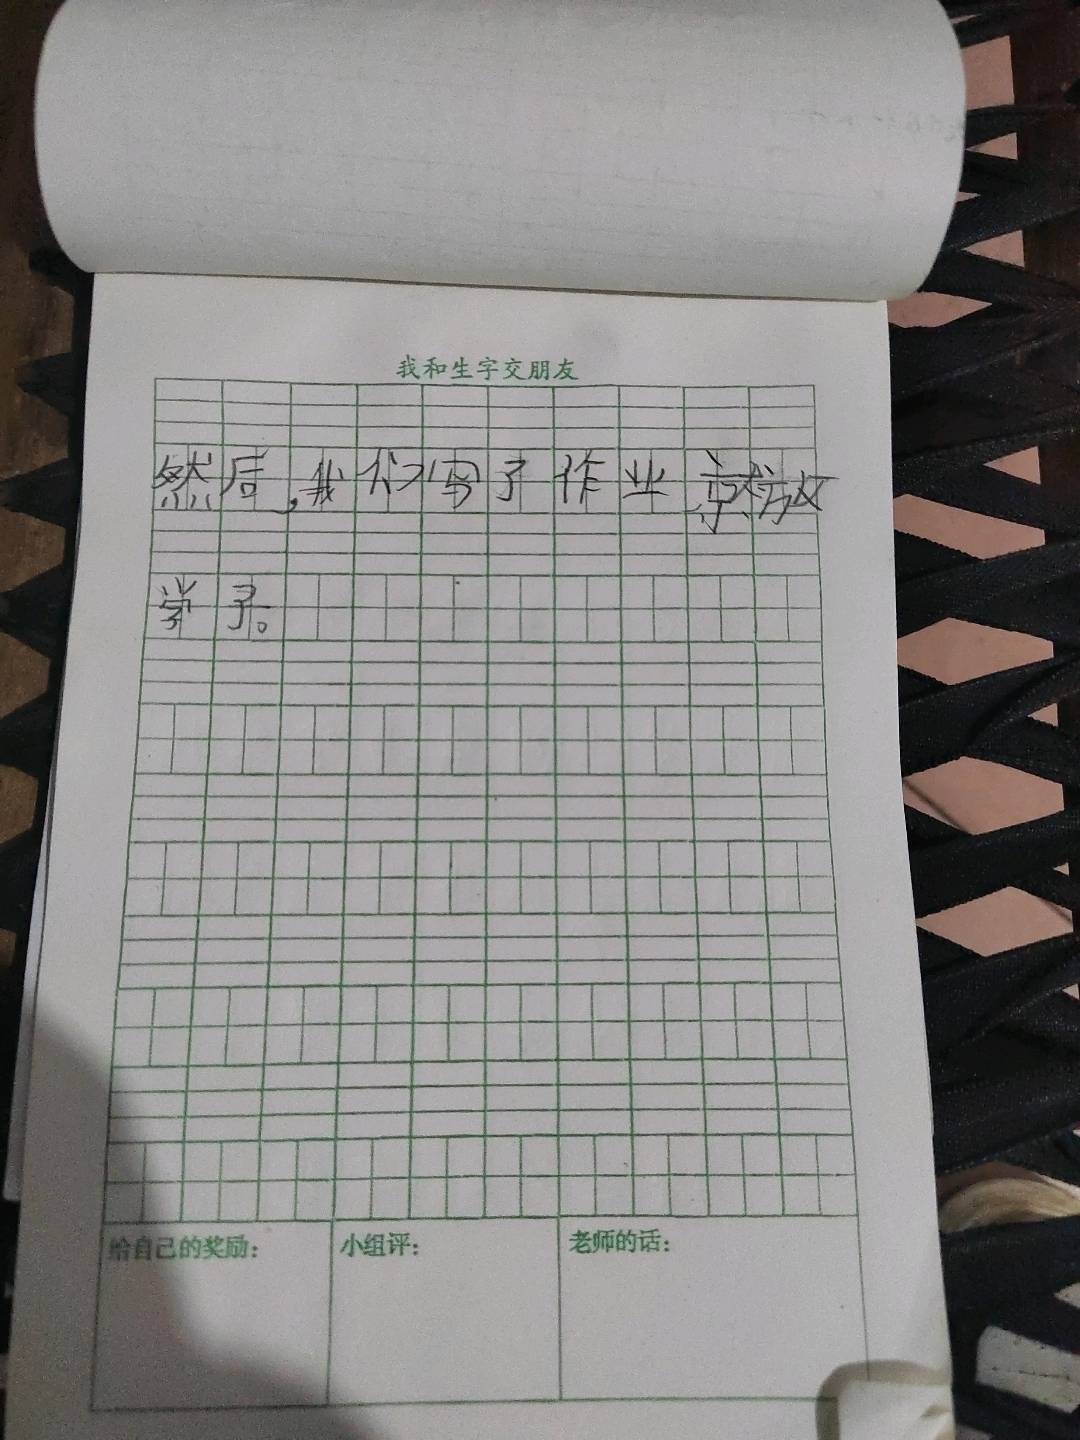 我和生字交朋友
然后,我们写了作业,就放
学了。
给自己的奖励:
小组评:
老师的话: